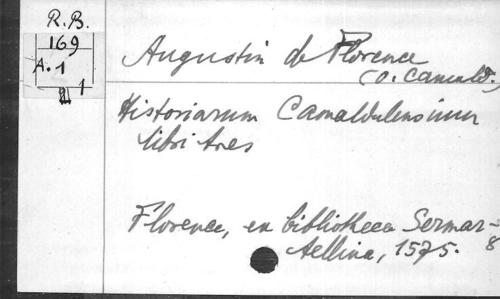 R.B.
169
A. 1
1
Augustin de Florence
(O. Camald.)
Historiarum Camaldulensium
libri tres
Florence, ex bibliotheca Sermar-
tellina, 1575.
8